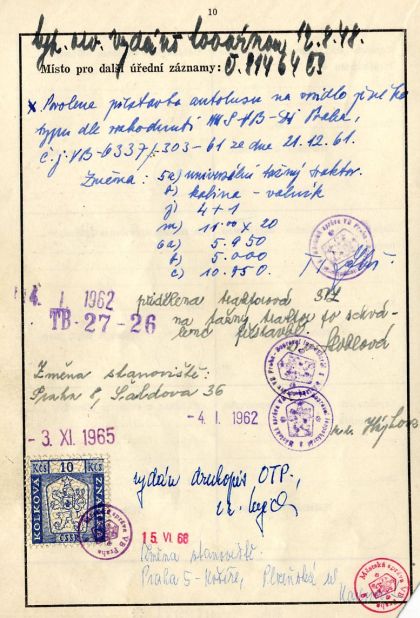 10
vydáno továrnou 12.8.48.
Místo pro další úřední záznamy:
Povolena přestavba autobusu na vozidlo jiného
typu dle rozhodnutí MV-HS-VB-DI Praha,
č.j. VB-6337/-303-61 ze dne 21.12.61.
Změna: 5a) universální tažný traktor
b) kabina - valník
j) 4 + 1
m) 11.00 x 20
6a) 5.950
b) 5.000
c) 10.950.
4. I. 1962 přidělena traktorová SPZ
TB-27-26 na tažný traktor po schvá-
lené přestavbě.
Změna stanoviště:
Praha 8, Šaldova 36
-4. I. 1962
-3. XI. 1965
KOLKOVÁ ZNÁMKA
Kčs 10 Kčs
ČSSR
vydán druhopis OTP.
15. VI. 68
Změna stanoviště:
Praha 5 - Košíře, Plzeňská